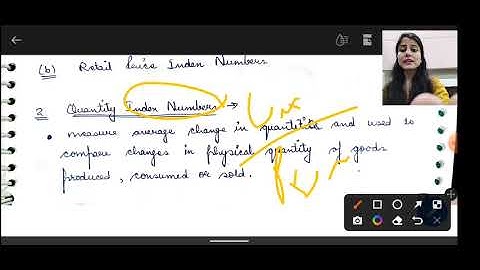 (b) Retail Price Index Numbers
2 Quantity Index Numbers →
• measure average change in quantities and used to
compare changes in physical quantity of goods
produced, consumed or sold.